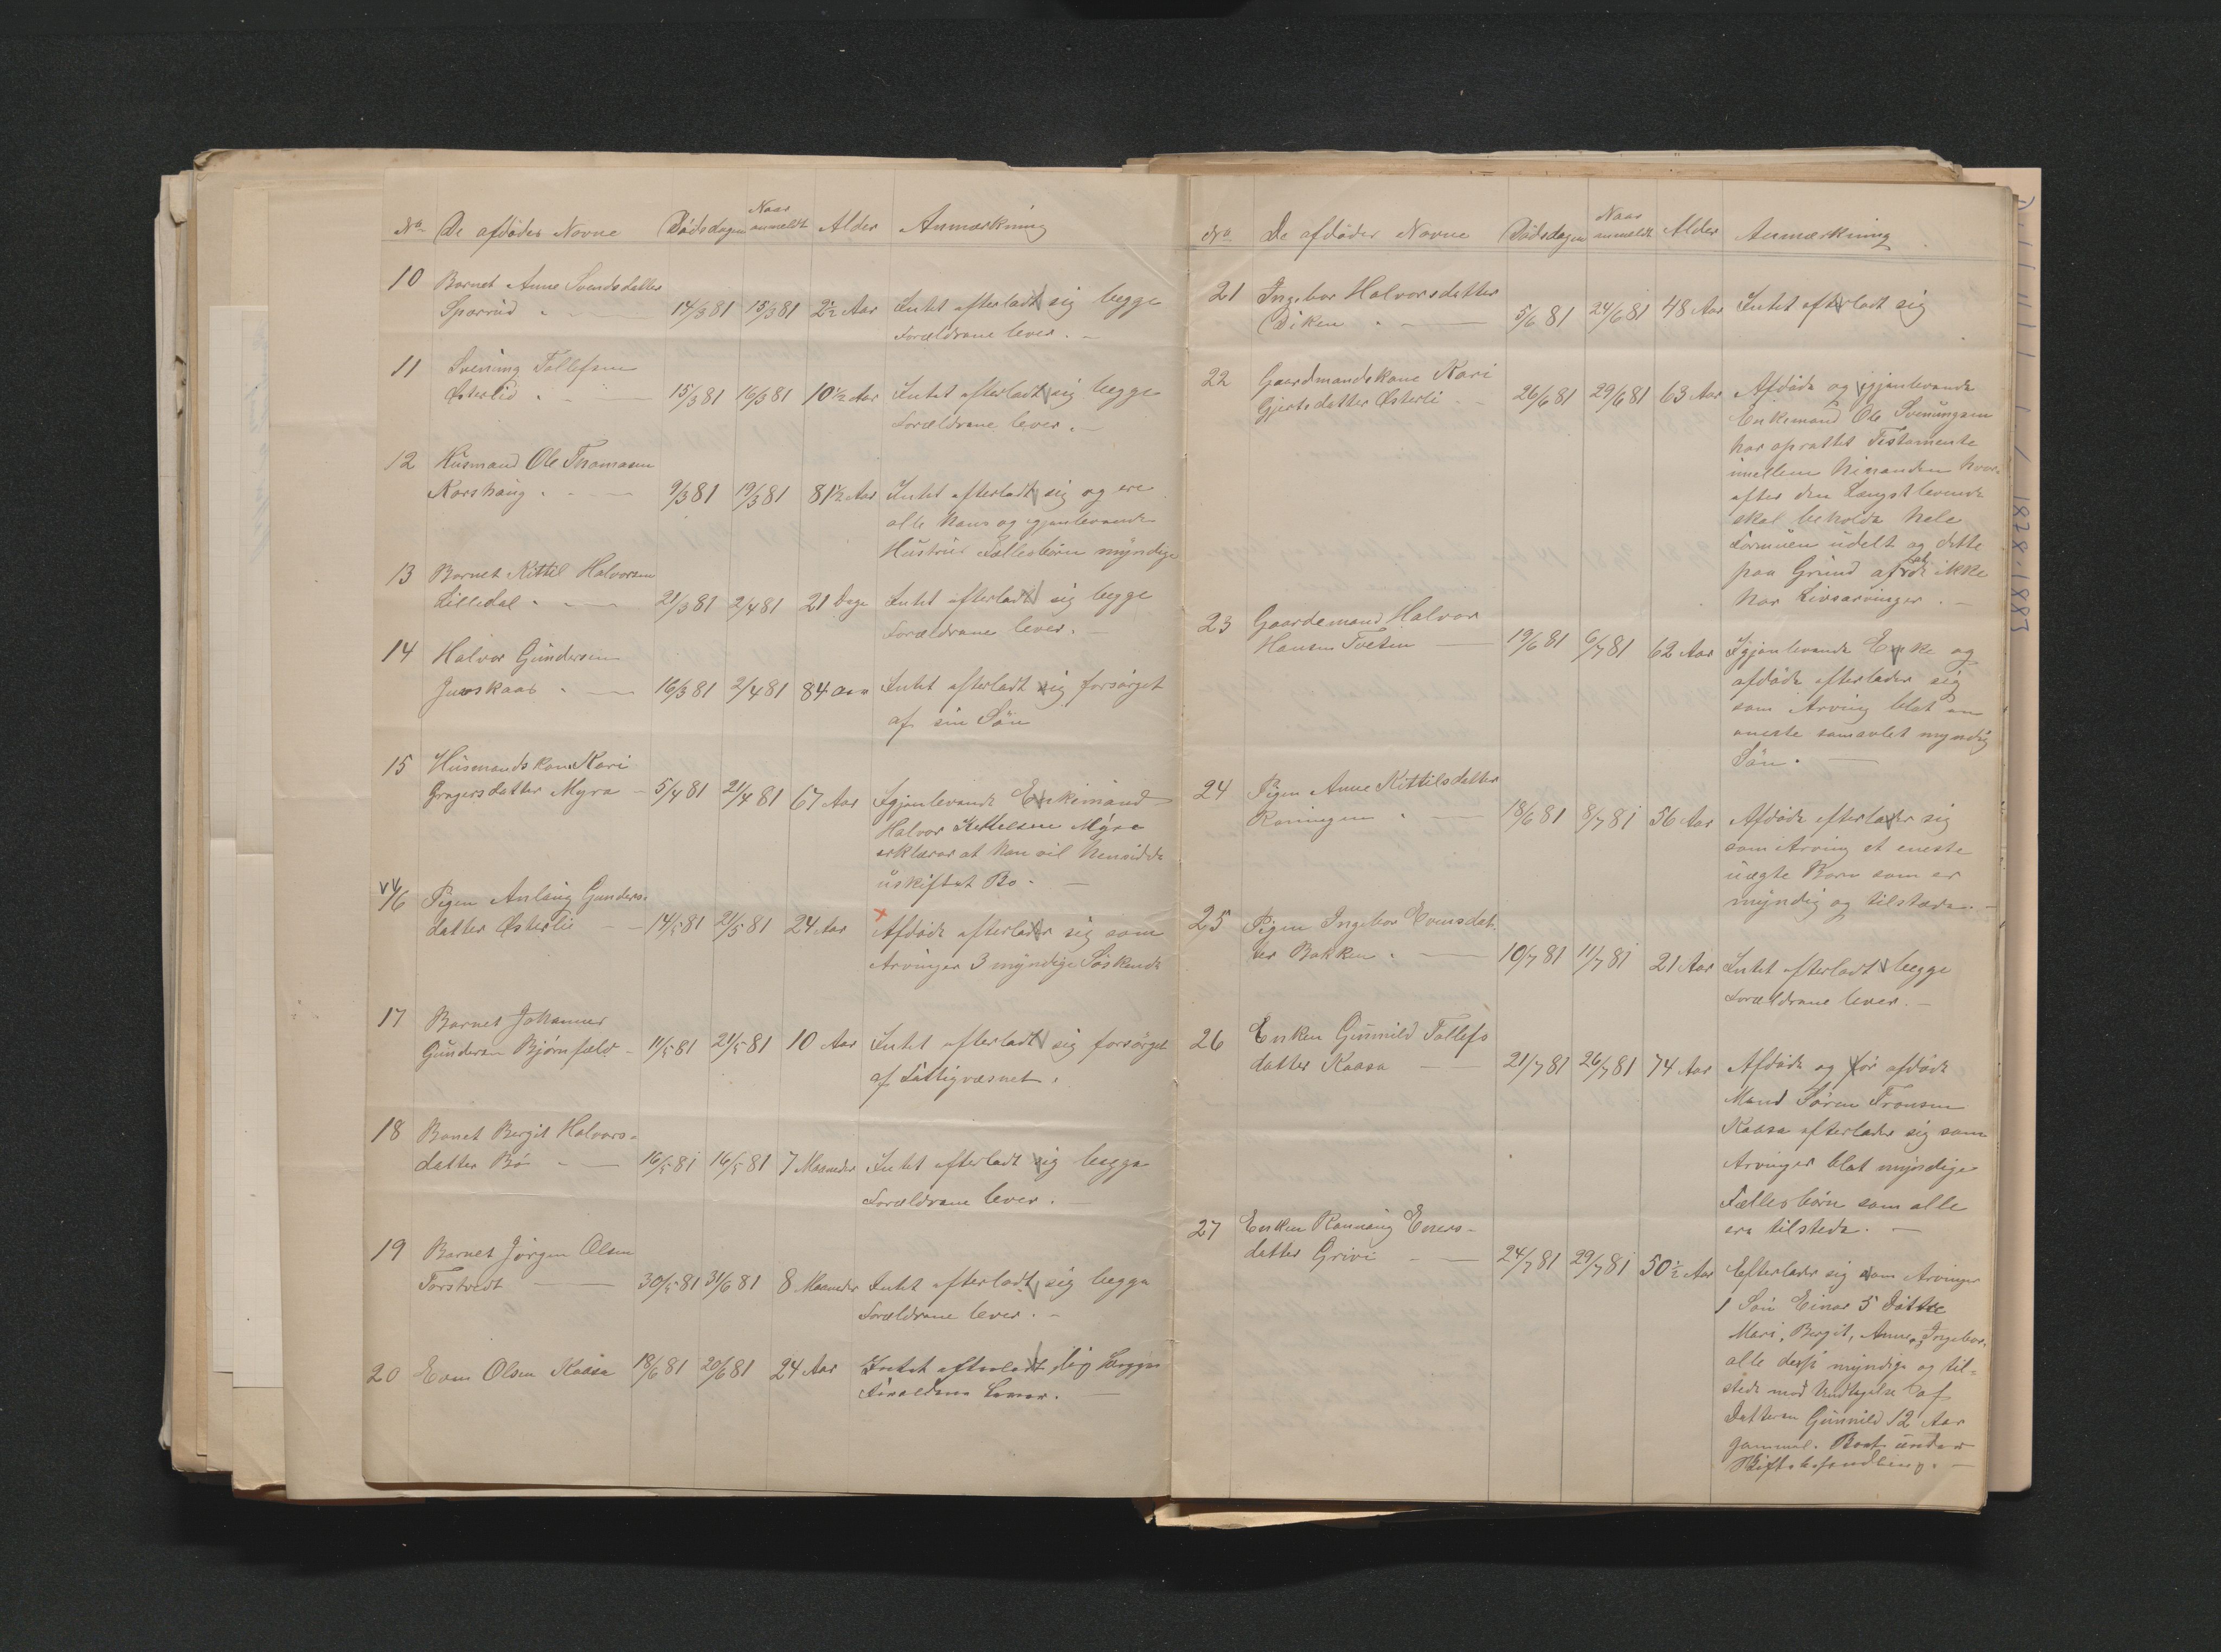 No De afdødes Navne Dødsdagen Naar anmeldt Alder Anmærkning
10 Barnet Anne Svendsdatter
Sparrud 14/3 81 15/3 81 2½ Aar Intet efterladt sig begge
Forældrene lever.
11 Svenung Tollefsen
Østerlid 15/3 81 16/3 81 10½ Aar Intet efterladt sig begge
Forældrene lever.
12 Husmand Ole Thomasen
Korshaug 9/3 81 19/3 81 81½ Aar Intet efterladt sig og ere
alle hans og igjenlevende
Hustrus Fællesbørn myndige
13 Barnet Kittil Halvorsen
Lilledal 21/3 81 2/4 81 21 Dage Intet efterladt sig begge
Forældrene lever.
14 Halvor Gundersen
16/3 81 2/4 81 84 Aar Intet efterladt sig forsørget
af sin Søn
15 Husmandskone Kari
Gregersdatter Myra 5/4 81 21/4 81 67 Aar Igjenlevende Enkemand
Halvor Kittelsen Myra
erklærer at han vil hensidde
i uskiftet Bo.
16 Pigen Anlaug Gunders-
datter Østerlie 14/5 81 21/5 81 24 Aar Afdøde efterlader sig som
Arvinger 3 myndige Søskende
17 Barnet Johannes
Gundersen Bjørnfeld 11/5 81 21/5 81 10 Aar Intet efterladt sig forsørget
af Fattigvæsnet.
18 Barnet Bergit Halvors-
datter Bø 16/5 81 16/5 81 7 Maaneder Intet efterladt sig begge
Forældrene lever.
19 Barnet Jørgen Olsen
Torstvedt 30/5 81 31/6 81 8 Maaneder Intet efterladt sig begge
Forældrene lever.
20 Even Olsen Kaasa 18/6 81 20/6 81 24 Aar Intet efterladt sig Begge
Forældrene Lever.
No De afdødes Navne Dødsdagen Naar anmeldt Alder Anmærkning
21 Ingebor Halvorsdatter
Diken 5/6 81 24/6 81 48 Aar Intet efterladt sig
22 Gaardmandskone Kari
Gjertsdatter Østerli 26/6 81 29/6 81 63 Aar Afdøde og igjenlevende
Enkemand Ole Svenungsen
har oprettet Testamente
imellem hinanden hvor-
efter den Længstlevende
skal beholde hele
Formuen udelt og dette
paa Grund af at de ikke
har Livsarvinger.
23 Gaardemand Halvor
Hansen Tveten 19/6 81 6/7 81 62 Aar Igjenlevende Enke og
afdøde efterlader sig
som Arving blot en
eneste samavlet myndig
Søn.
24 Pigen Anne Kittilsdatter
Roningen 18/6 81 8/7 81 56 Aar Afdøde efterlader sig
som Arving et eneste
uægte Barn som er
myndig og tilstede.
25 Pigen Ingebor Evensdat-
ter Bakken 10/7 81 11/7 81 21 Aar Intet efterladt begge
Forældrene lever.
26 Enken Gunnild Tollefs
datter Kaasa 21/7 81 26/7 81 74 Aar Afdøde og før afdøde
Mand Søren Fransen
Kaasa efterlader sig som
Arvinger blot myndige
Fællesbørn som alle
ere tilstede.
27 Enken Rannaug Eners-
datter Grivi 24/7 81 29/7 81 50½ Aar Efterlader sig som Arvinger
1 Søn Einar 5 Døttre
Mari, Bergit, Anne, og Ingebor.
alle disse myndige og til-
stede med Undtagelse af
Datteren Gunnild 12 Aar
gammel. Boet under
Skiftebehandling.
1878-1883